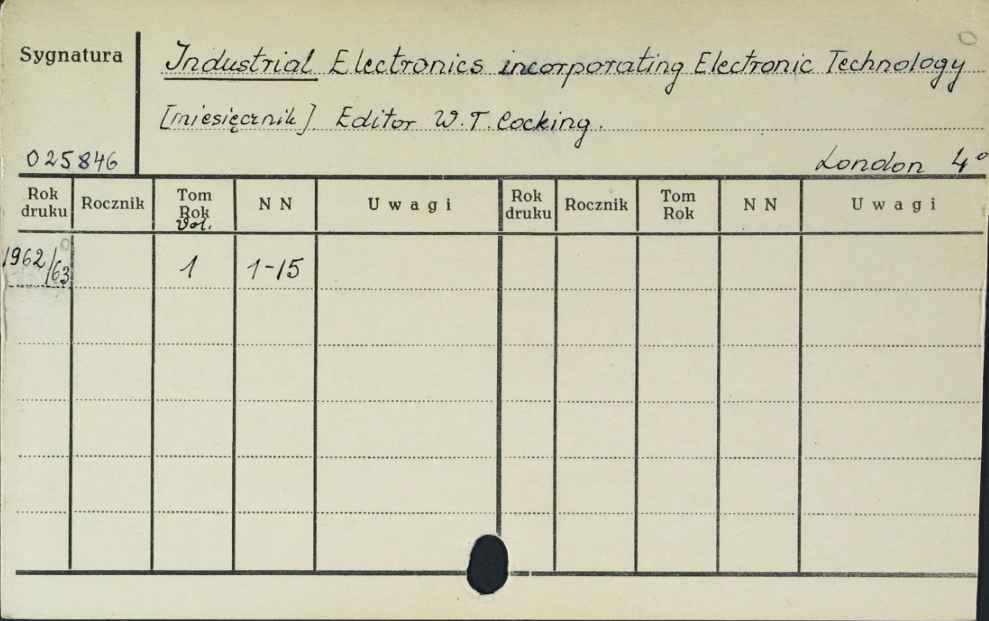 Sygnatura
Industrial Electronics incorporating Electronic Technology
[miesięcznik]. Editor W. T. Cocking.
025846
London 4°
Rok druku Rocznik Tom Rok Vol. N N Uwagi Rok druku Rocznik Tom Rok N N Uwagi
1962/63 1 1-15